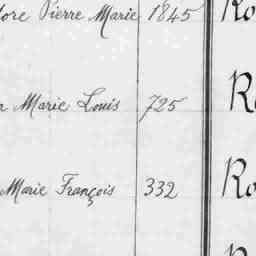 Pierre Marie 1845 Ro
Marie Louis 725 R
Marie François 332 Ro